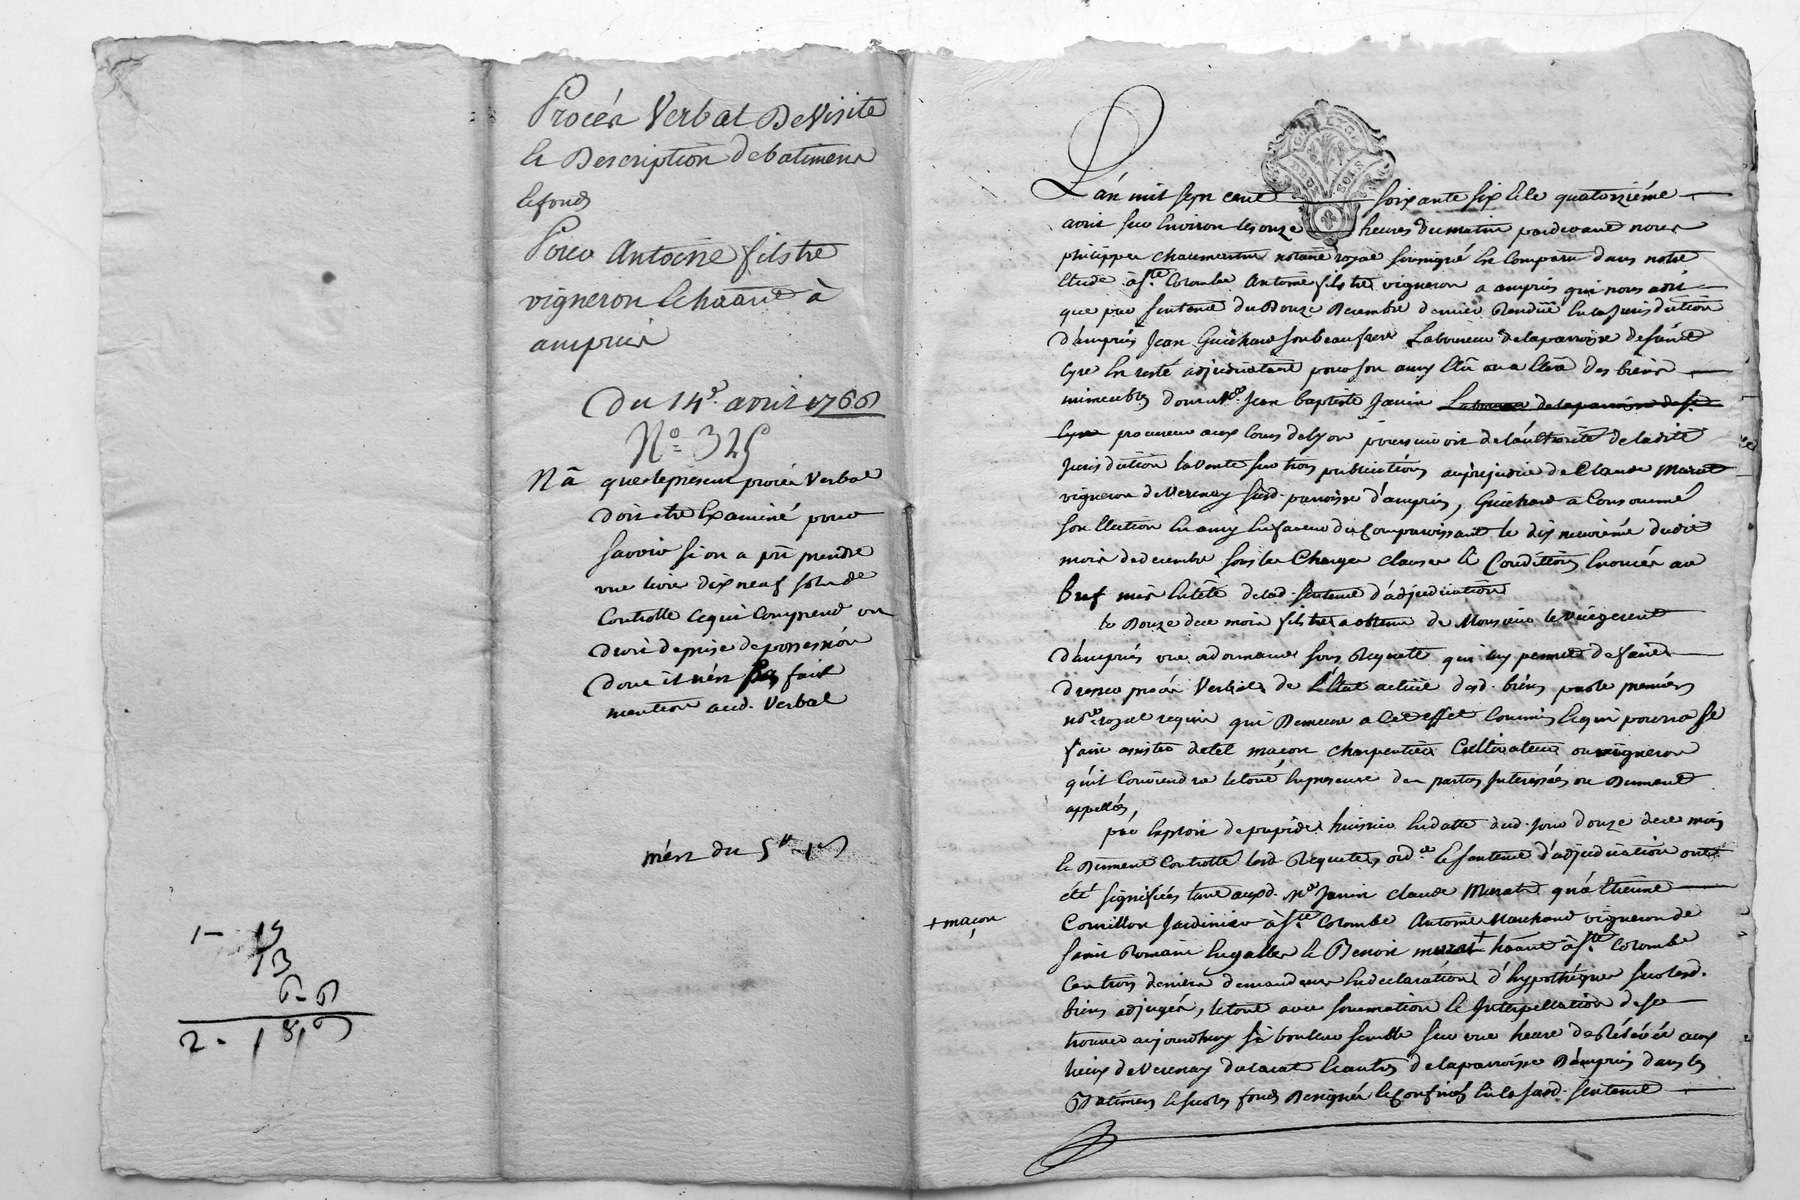 Procés Verbal De Visite
et Description de batimens
et fonds
Pour Antoine filstre
vigneron habitant à
ampuis
Du 14e. avril 1766
No. 325
N a que le present procés Verbal
doit etre Examiné pour
savoir si on a pu prendre
une livre dix neuf sols de
Controlle ce qui Comprend un
droit de prise de possession
dont il n'est pas fait
mention aud. Verbal
n'est du
1 - 19
13
6 - 6
L'an mil sept cent soixante six et le quatorzième
avril sur Environ les onze heures du matin pardevant nous
philippes notaire royal soussigné Est Comparu dans notre
Etude à Ste. Colombe Antoine filstre vigneron a ampuis qui nous a dit
que par sentence du Douze Decembre dernier Rendüe En la Jurisdiction
d'ampuis Jean Guichard son beau frere Laboureur de la parroisse de saint
Cyre En resté adjudicataire pour son amy Elû ou a Elire des biens
immeubles dont Me. Jean baptiste Janin Laboureur de la parroisse de St.
Cyre procureur aux Cours de Lyon poursuivoit de l'authorité de ladite
Jurisdiction la vente sur trois publications au préjudice de Claude Murat
vigneron de Verenay susd. parroisse d'ampuis, Guichard a Consommé
son Election En amy En faveur du Comparoissant le dix neuvième dudit
mois de decembre sous les Charges clauses et Conditions Enoncées au
Bref mis En tête de lad. sentence d'adjudication
le Douze de ce mois filstre a obtenu de Monsieur le viégerent
d'ampuis une ordonnance sous Requete qui luy permet de faire
dresser procés Verbal de L'Etat actuel desd. biens par le premier
nore. royal requis qui Demeure a Cet effet Commis lequel pourra se
faire assister de tel macon charpentier Cultivateur ou vigneron
qu'il Conviendra le tout En presence des parties Interessées ou Dument
appellées,
par Exploit de huissier En datte dud. jour douze de ce mois
et Dument Controllé lesd. Requete, ordce. et sentence d'adjudication ont
été signifiées tant aud. Me. Janin claude Murat qu'à Etienne
Cornillon Jardinier à Ste. Colombe Antoine Marchand vigneron de
+ maçon
saint Romain En galles et Benoit murat + habitant à Ste. Colombe
Ces trois derniers demandeurs En declaration d'hypothèques sur lesd.
biens adjugés, le tout avec sommation et Interpellation de se
trouver aujourdhuy si bon leur semble sur une heure de Relevée aux
lieux de Verenay et autres de la parroisse D'ampuis dans les
Batimens et sur les fonds Designés et Confinés En la susd. sentence